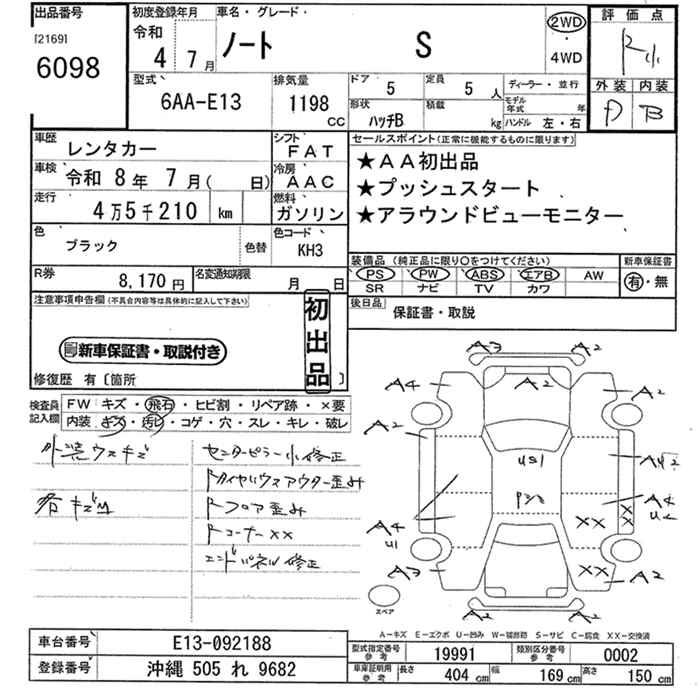 出品番号
[2169]
6098
初度登録年月
令和
4年 7月
車名・グレード
ノート S
2WD
・
4WD
評価点
R小
外装 内装
D B
型式
6AA-E13
排気量
1198 CC
ドア 5
定員 5 人
形状 ハッチB
積載 kg
ディーラー・並行
モデル年式 年
ハンドル 左・右
車歴 レンタカー
シフト FAT
車検 令和 8年 7月( 日)
冷房 AAC
走行 4万5千210 km
燃料 ガソリン
色 ブラック 色替
色コード KH3
R券 8,170円
名変通知期限 月 日
セールスポイント(正常に機能するものに限ります)
★AA初出品
★プッシュスタート
★アラウンドビューモニター
装備品(純正品に限り○をつけてください)
新車保証書
PS PW ABS エアB AW
SR ナビ TV カワ
有・無
後日品 保証書・取説
注意事項申告欄(不具合内容等は具体的に記入して下さい)
新車保証書・取説付き
初出品
修復歴 有〔箇所 〕
検査員記入欄
FW キズ・飛石・ヒビ割・リペア跡・×要
内装 キズ・汚レ・コゲ・穴・スレ・キレ・破レ
外装ウスキズ
センターピラー小修正
Rホイルハウスアウター歪み
右キズ
Rフロア歪み
Rコーナー××
エンドパネル修正
A3 A2
A4 A2 A2
A2
US1 A2
A4 A4
U1 P U2
×× ××
A3 ×× A2
A2 A2
スペア
A-キズ E-エクボ U-凹み W-補修跡 S-サビ C-腐食 XX-交換済
車台番号 E13-092188
登録番号 沖縄 505 れ 9682
型式指定番号 参考 19991
類別区分番号 参考 0002
車庫証明用 参考
長さ 404 cm
幅 169 cm
高さ 150 cm